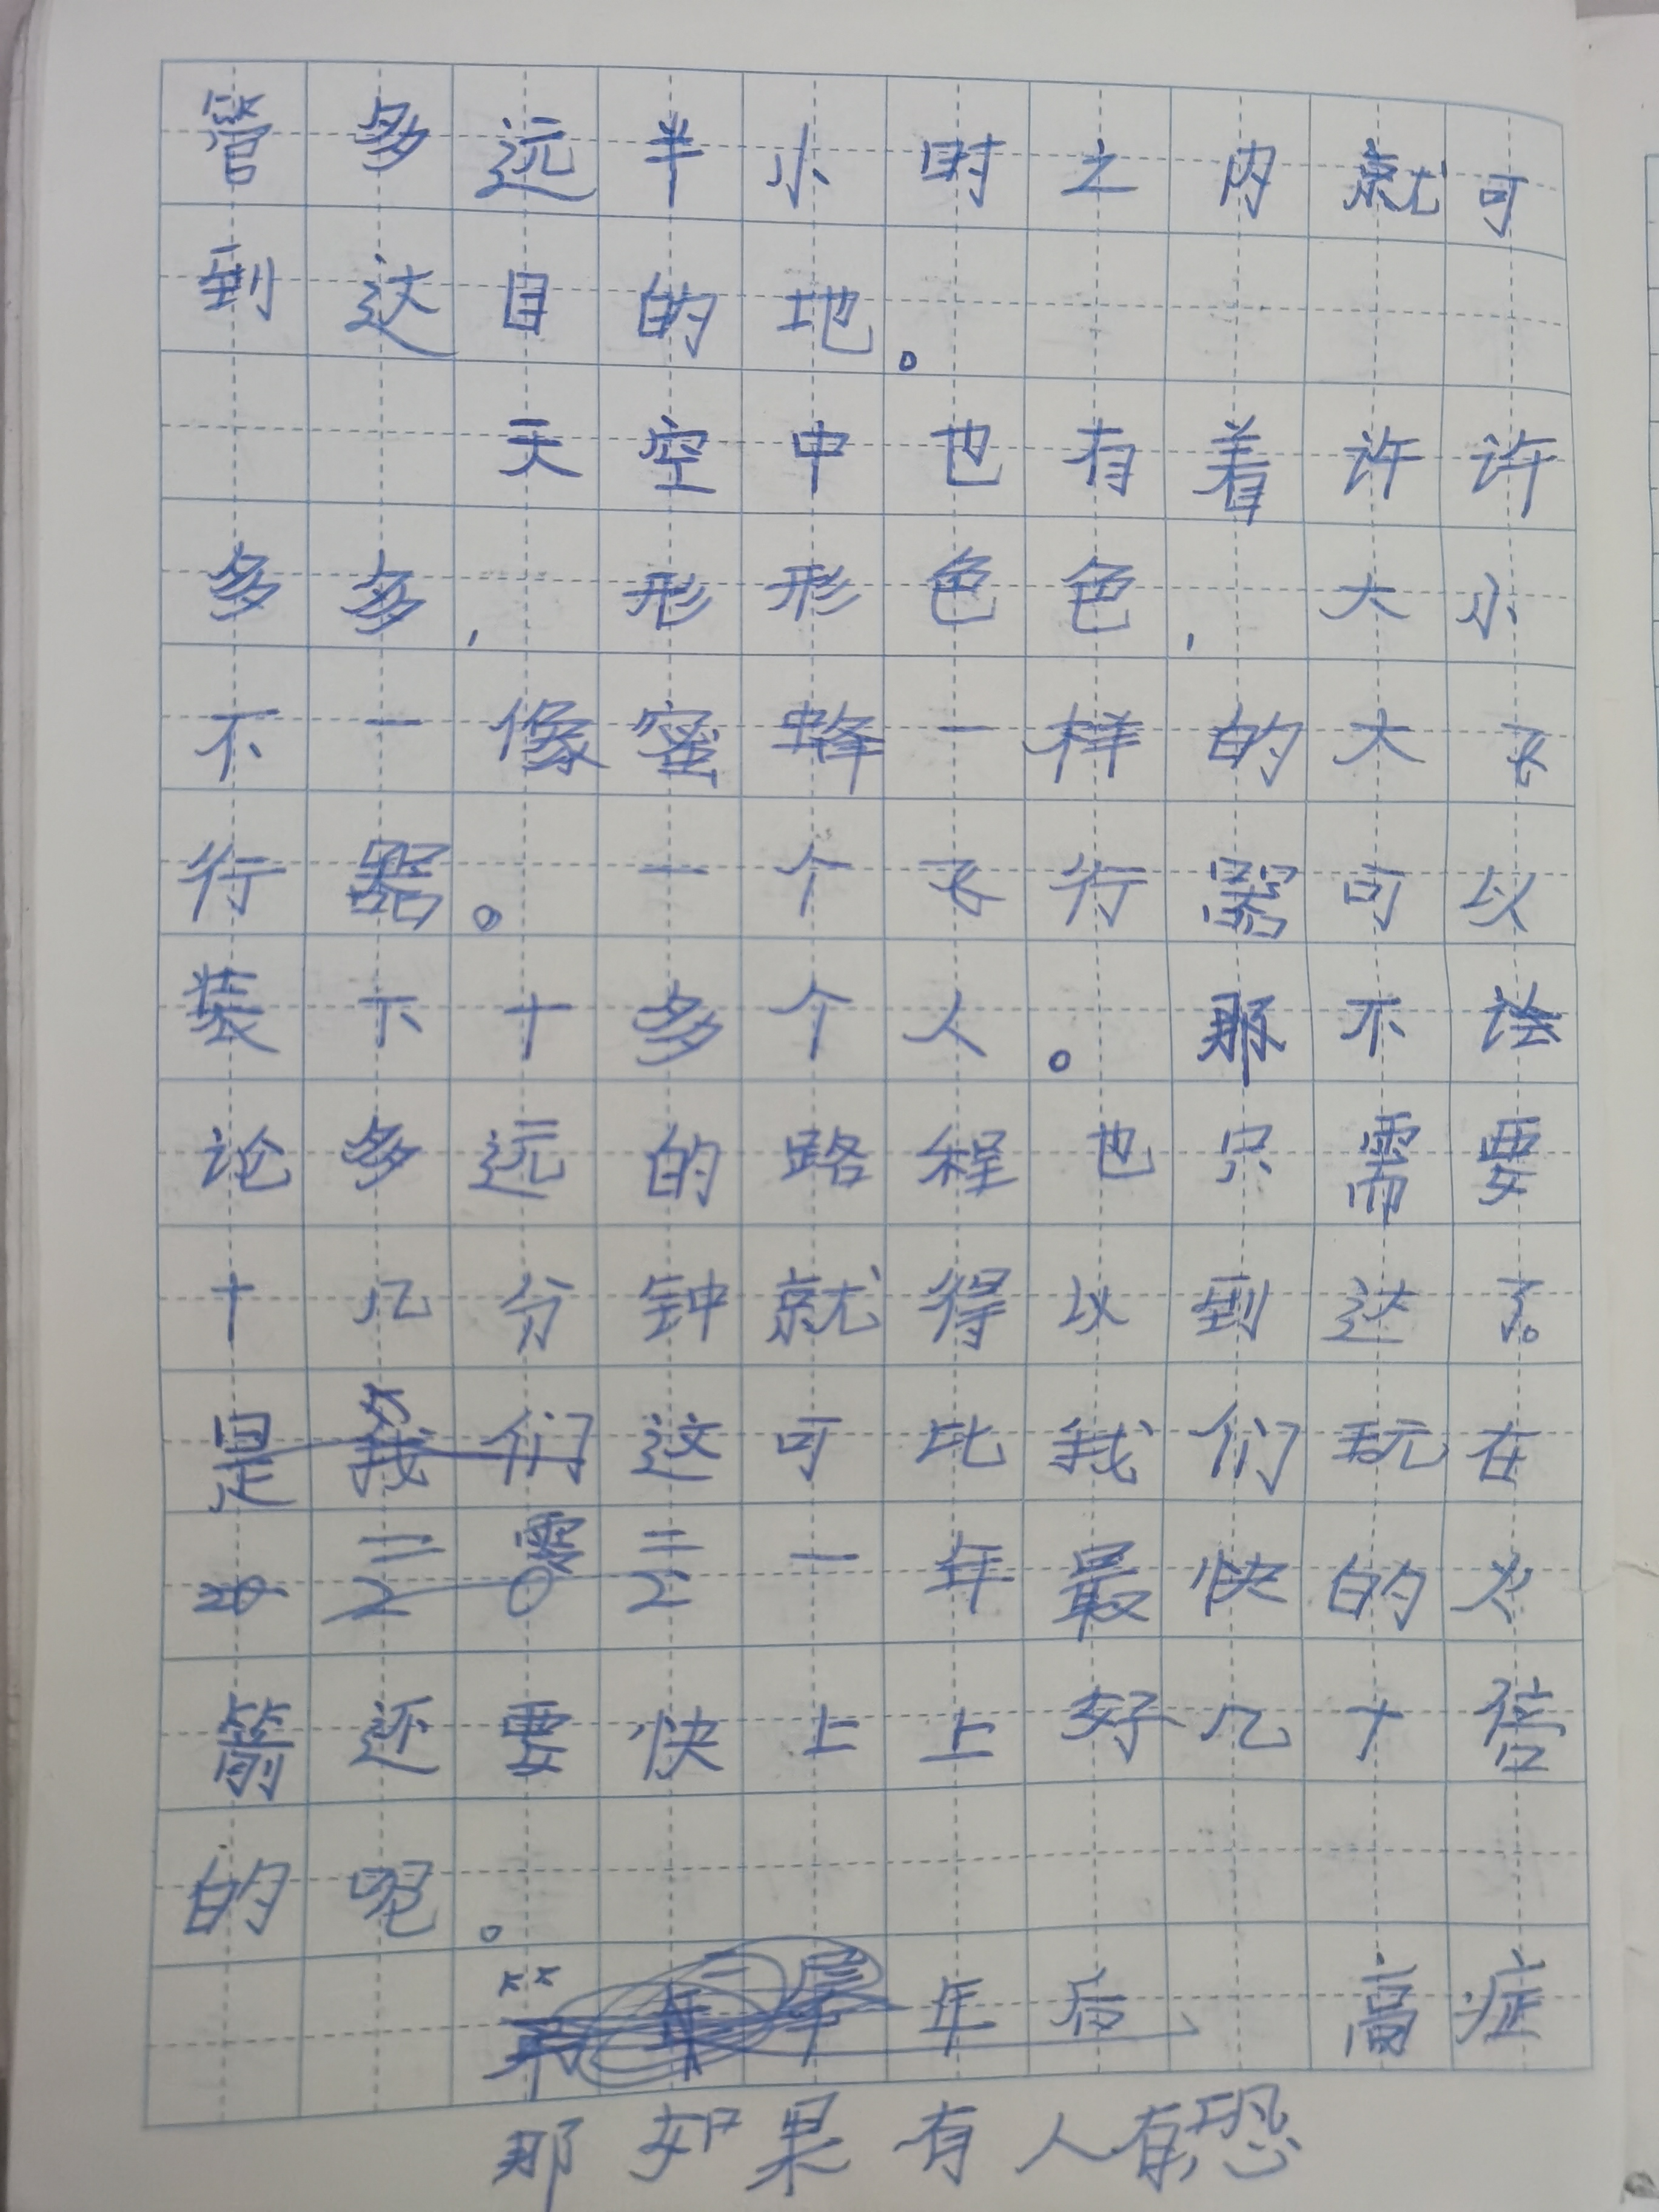 管多远半小时之内就可
到达目的地。
天空中也有着许许
多多,形形色色,大小
不一像蜜蜂一样的大飞
行器。一个飞行器可以
装下十多个人。那不
论多远的路程也只需要
十几分钟就得以到达了。
是我们这可比我们现在
二零二一年最快的火
箭还要快上上好几十倍
的呢。
年后、高症
那如果有人有恐